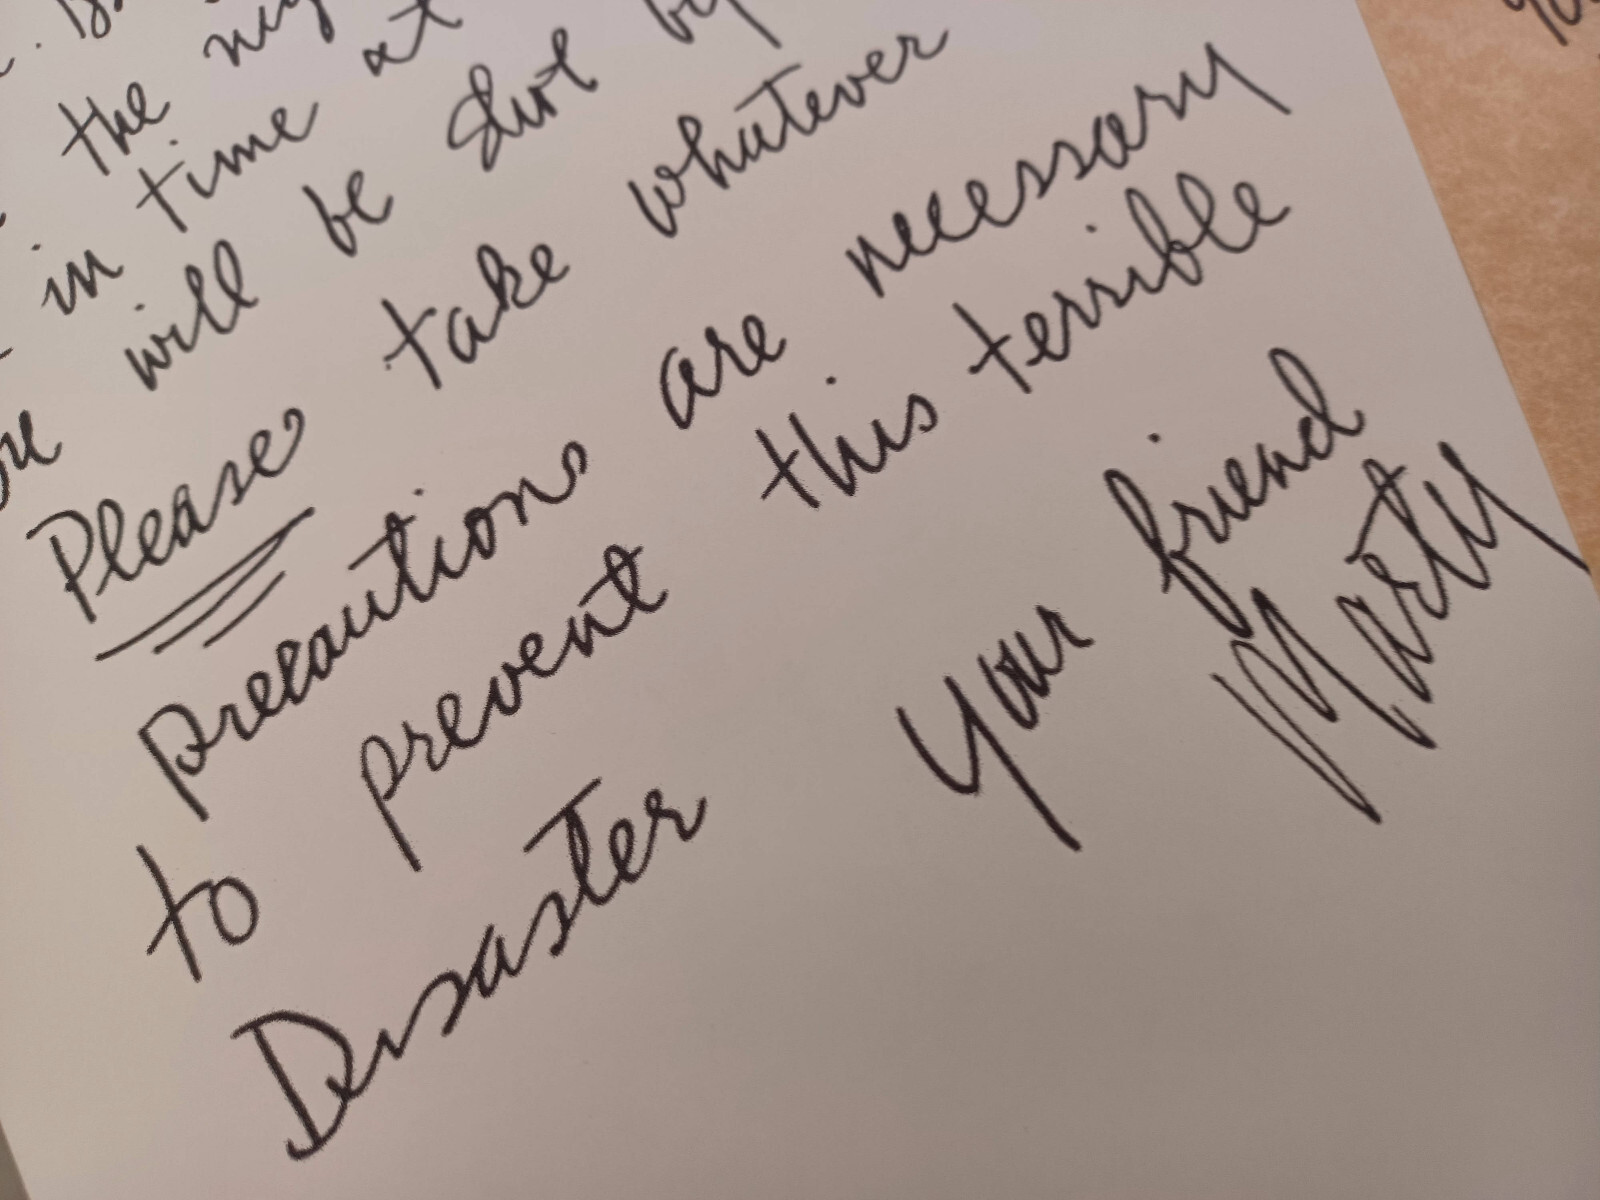 the
in time at
will be shot by
Please take whatever
precautions are necessary
to prevent this terrible
Disaster
Your friend
Marty